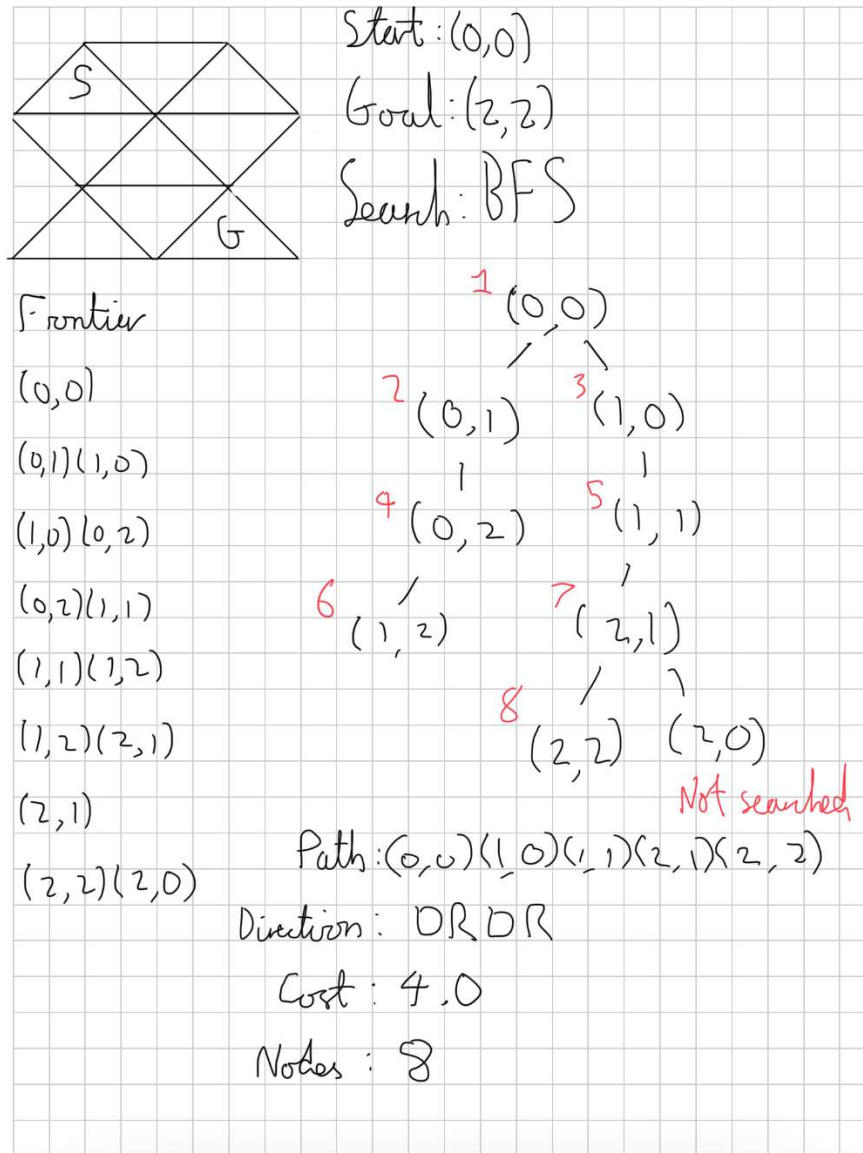 S
G
Start: (0,0)
Goal: (2,2)
Search: BFS
Frontier
(0,0)
(0,1)(1,0)
(1,0)(0,2)
(0,2)(1,1)
(1,1)(1,2)
(1,2)(2,1)
(2,1)
(2,2)(2,0)
1 (0,0)
2 (0,1) 3 (1,0)
4 (0,2) 5 (1,1)
6 (1,2) 7 (2,1)
8 (2,2) (2,0)
Not searched
Path: (0,0)(1,0)(1,1)(2,1)(2,2)
Direction: DRDR
Cost: 4.0
Nodes: 8